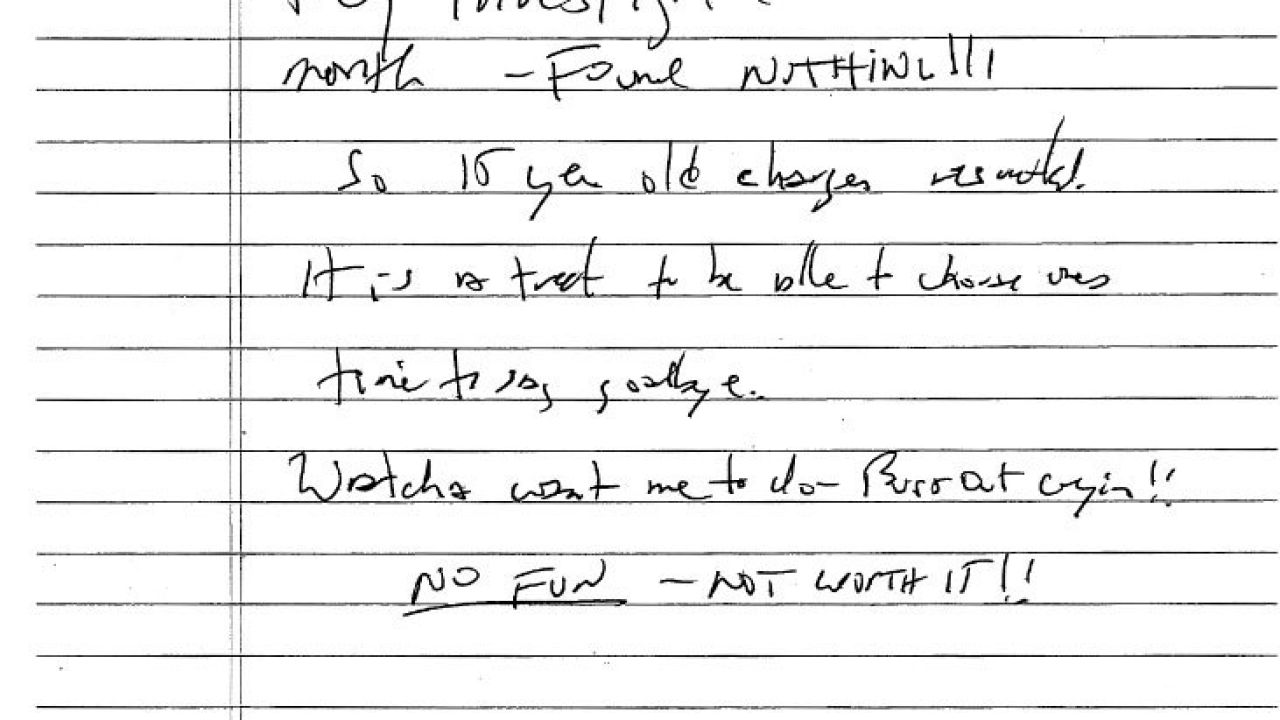 They investigated me
month - FOUND NOTHING!!!
So 15 year old charges resulted.
It is a treat to be able to choose ones
time to say goodbye.
Watcha want me to do - Bust out cryin!!
NO FUN - NOT WORTH IT!!